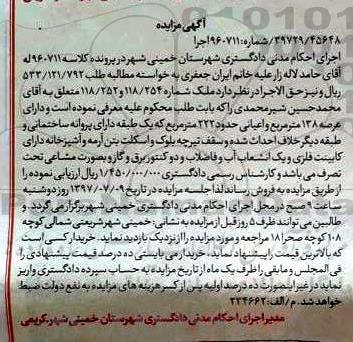 آگهی مزایده
۳۹۷۲۹/۴۵۶۴۸/شماره: ۹۶۰۷۱۱اجرا
اجرای احکام مدنی دادگستری شهرستان خمینی شهر در پرونده کلاسه ۹۶۰۷۱۱له
آقای حامد لاله زار علیه خانم ایران جعفری به خواسته مطالبه طلب ۵۳۳/۱۲۱/۷۹۲
ریال و نیز حق الاجرا در نظر دارد ملک شماره ۱۱۸/۲۵۴ و ۱۱۸/۲۵۲ متعلق به آقای
محمدحسین شیرمحمدی را که بابت طلب محکوم علیه معرفی نموده است و دارای
عرصه ۱۳۸ مترمربع و اعیانی حدود ۲۲۲ مترمربع که یک طبقه دارای پروانه ساختمانی و
طبقه دیگر خلاف احداث شده و سقف تیرچه بلوک و اسکلت بتن آرمه و آشپزخانه دارای
کابینت فلزی و یک انشعاب آب و فاضلاب و دو کنتور برق و گاز و بصورت مشاعی تحت
تصرف می باشد و کارشناس رسمی دادگستری ۱/۴۵۰/۰۰۰/۰۰۰ ریال ارزیابی نموده را
از طریق مزایده به فروش رساند لذا جلسه مزایده در تاریخ ۱۳۹۷/۰۷/۰۹ روز دوشنبه
ساعت ۹ صبح در محل اجرای احکام مدنی دادگستری خمینی شهر برگزار می گردد. و
طالبین می توانند ظرف ۵ روز قبل از مزایده به نشانی: خمینی شهر شریعتی شمالی کوچه
۱۰۸ کوچه صحرا ۱۸ مراجعه و مورد مزایده را از نزدیک بازدید نماید. خریدار کسی است
که بالاترین قیمت را پیشنهاد نماید، خریدار می بایستی ده درصد قیمت پیشنهادی را
فی المجلس و مابقی را ظرف یک ماه از تاریخ مزایده به حساب سپرده دادگستری واریز
نماید در غیر اینصورت ده درصد اولیه پس از کسر هزینه های مزایده به نفع دولت ضبط
خواهد شد. م/الف: ۲۳۴۶۶۲
مدیر اجرای احکام مدنی دادگستری شهرستان خمینی شهر.کریمی